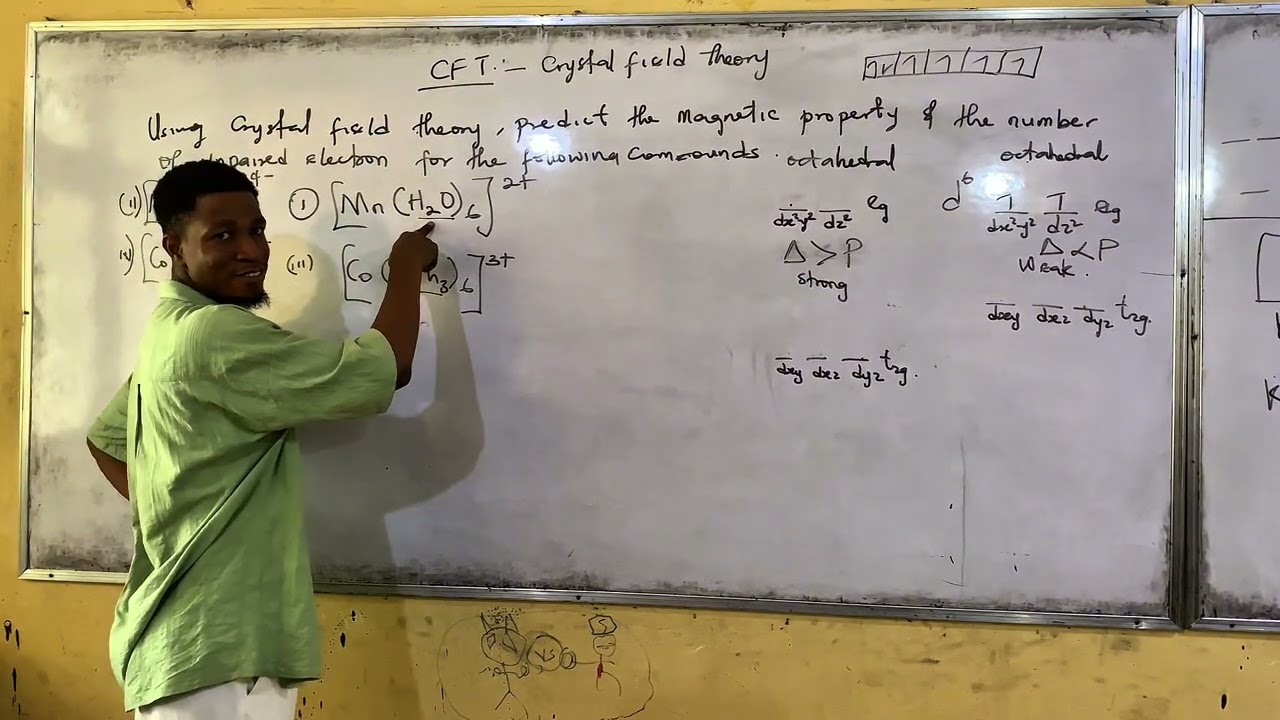 CFT:- Crystal field theory
Using Crystal field theory, predict the Magnetic property & the number
unpaired Electron for the following Compounds.
octahedral
octahedral
4-
(i) [Mn (H2O)6]2+
(iii) [Co h3)6]3+
(ii) [
iv) [Co
dx²y² dz² eg
Δ > P
strong
dxy dxz dyz t2g.
d6
1 1 eg
dx²y² dz²
Δ < P
Weak.
dxy dxz dyz t2g.
VS
S